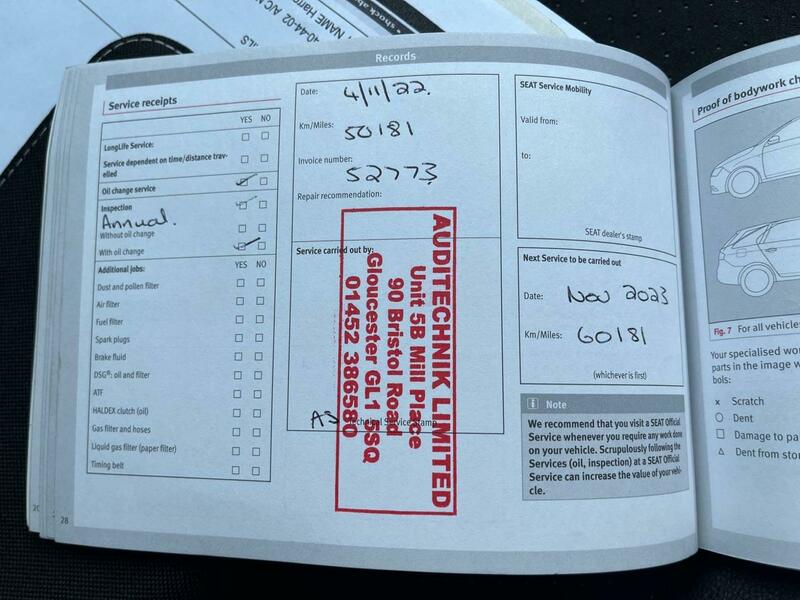 shock ab
NAME Harr
40-44-02 A/C N
ALS
Records
Service receipts
YES NO
LongLife Service:
Service dependent on time/distance trav-
elled
Oil change service
Inspection
Annual.
Without oil change
With oil change
Additional jobs: YES NO
Dust and pollen filter
Air filter
Fuel filter
Spark plugs
Brake fluid
DSG®: oil and filter
ATF
HALDEX clutch (oil)
Gas filter and hoses
Liquid gas filter (paper filter)
Timing belt
28
Date: 4/11/22.
Km/Miles: 50181
Invoice number: 52773
Repair recommendation:
Service carried out by:
AUDITECHNIK LIMITED
Unit 5B Mill Place
90 Bristol Road
Gloucester GL1 5SQ
01452 386580
AS
Technical Service Stamp
SEAT Service Mobility
Valid from:
to:
SEAT dealer's stamp
Next Service to be carried out
Date: Nov 2023
Km/Miles: 60181
(whichever is first)
i Note
We recommend that you visit a SEAT Official
Service whenever you require any work done
on your vehicle. Scrupulously following the
Services (oil, inspection) at a SEAT Official
Service can increase the value of your vehi-
cle.
Proof of bodywork ch
Fig. 7 For all vehicle
Your specialised wo
parts in the image w
bols:
x Scratch
○ Dent
□ Damage to pa
△ Dent from stor